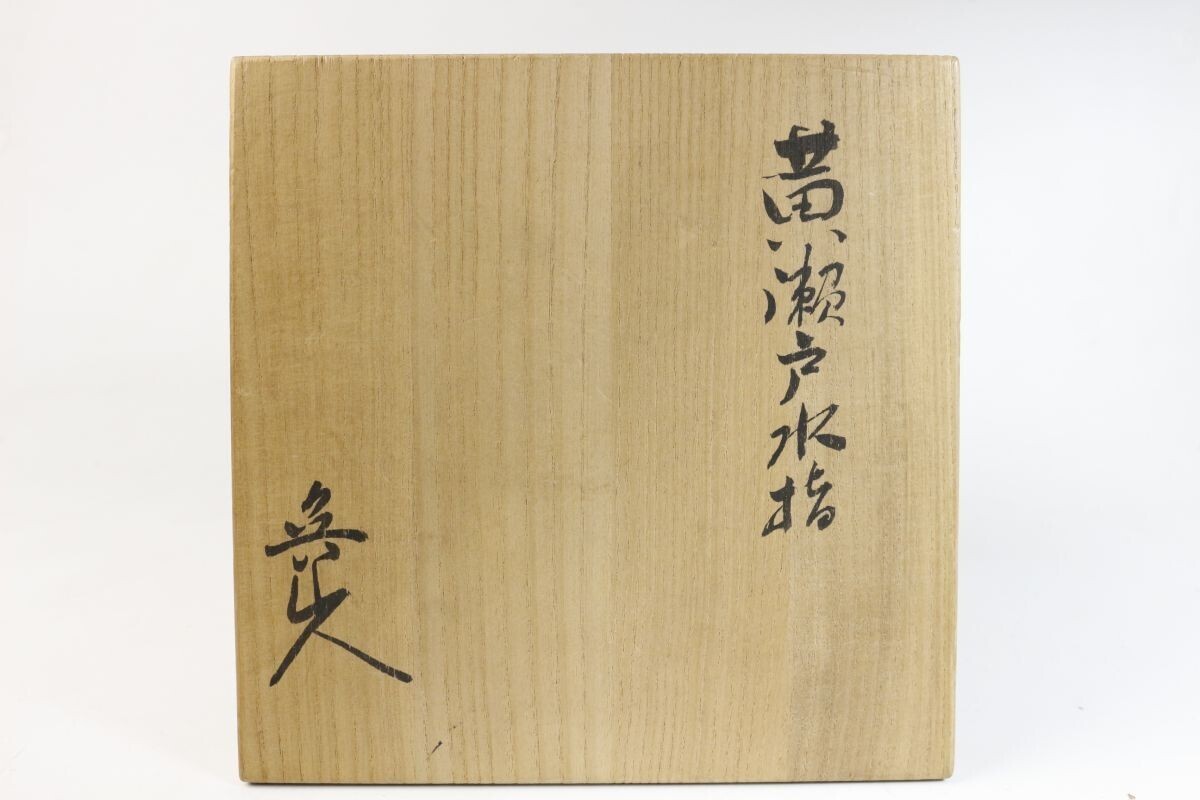 黄瀬戸水指